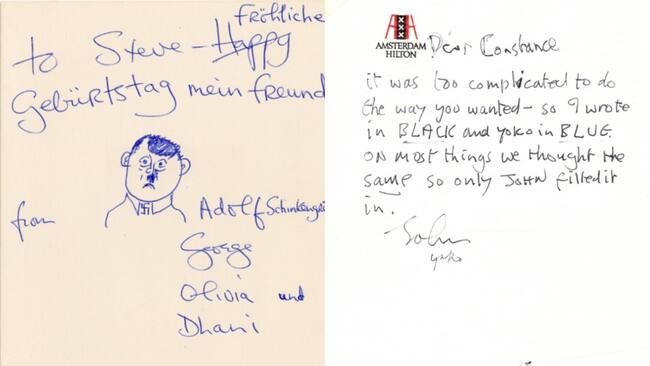 Fröhliche
to Steve - Happy
Gebürtstag mein freund
from
Adolf Schinkengrü
George
Olivia und
Dhani
AMSTERDAM
HILTON
Dear Constance
it was too complicated to do
the way you wanted - so I wrote
in BLACK and yoko in BLUE.
ON most things we thought the
same so only JOHN filled it
in.
John
yoko